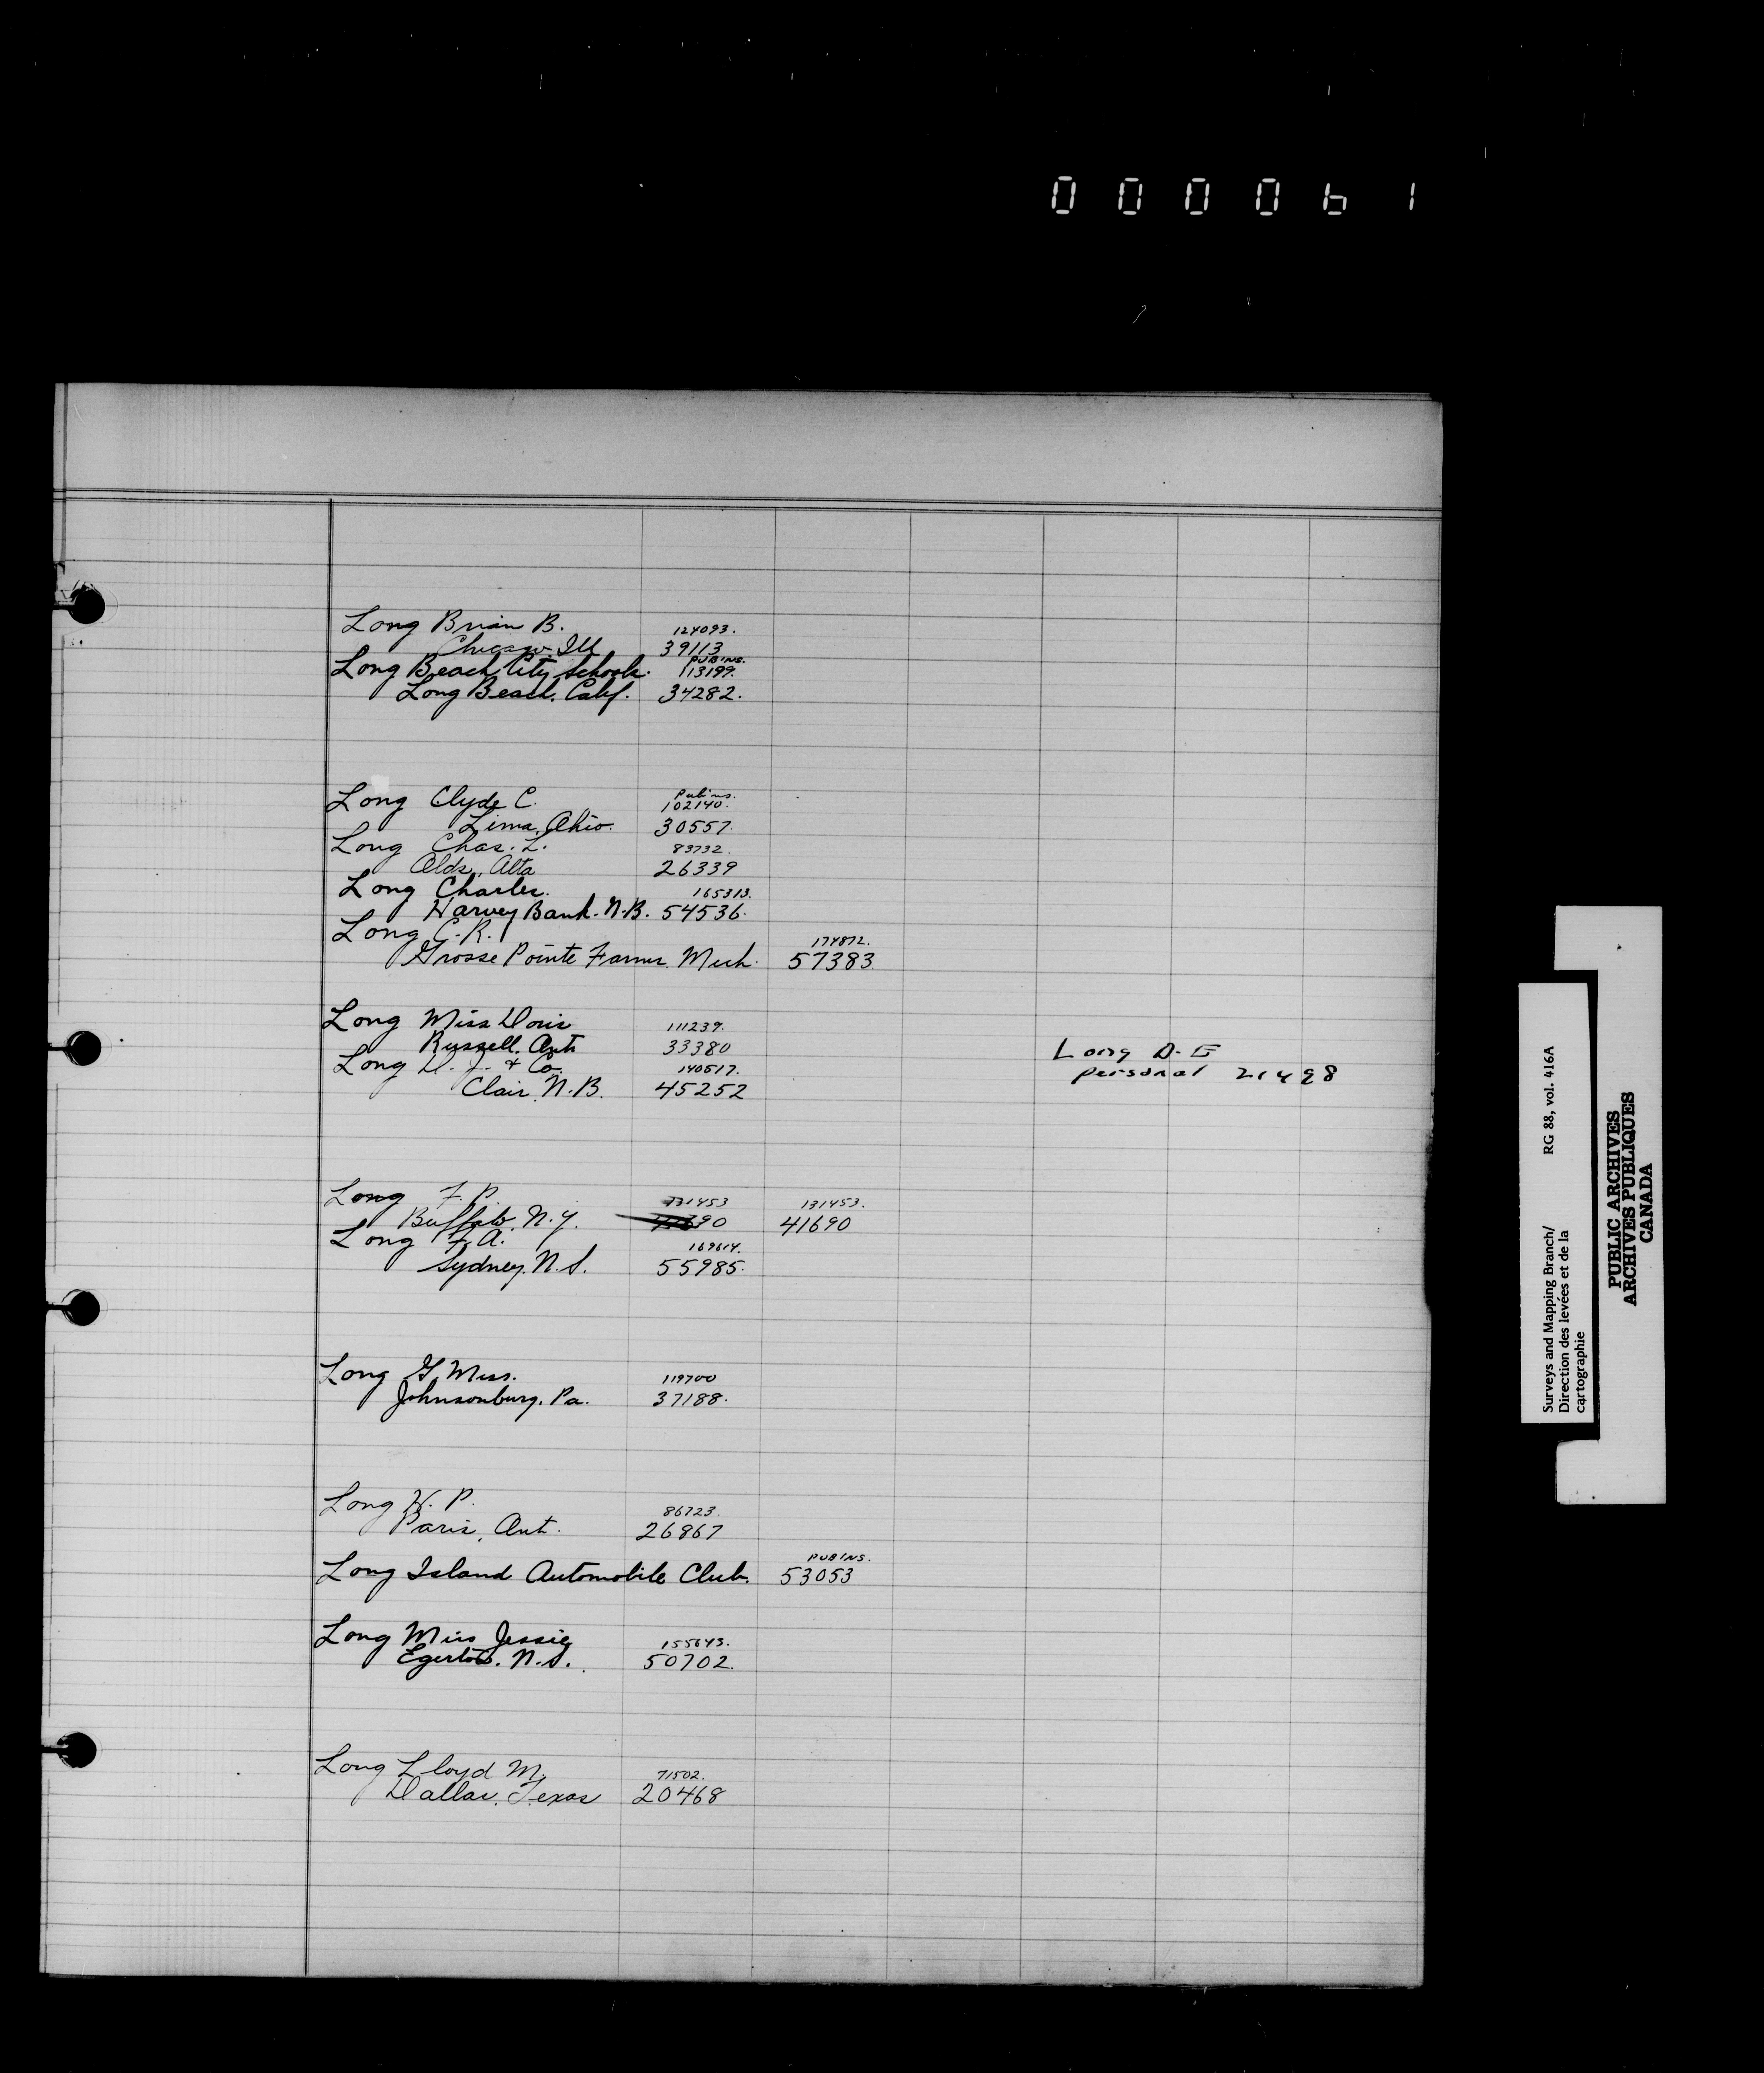 000061
Long Brian B. 124093.
Chicago Ill 39113
Long Beach City Schools. PUBINS. 113199.
Long Beach. Calif. 34282.
Long Clyde C. Pubins. 102140.
Lima, Ohio. 30557.
Long Chas. L. 83732.
Olds, Alta 26339
Long Charles. 165313.
Harvey Bank. N.B. 54536.
Long C. R. 174872.
Grosse Pointe Farms. Mich. 57383.
Long Miss Doris 111239.
Russell, Ont 33380
Long D. J. & Co. 140517.
Clair, N.B. 45252
Long D. E
personal 21498
Long F. P. 131453 131453.
Buffalo, N.Y. 41690 41690
Long F. A. 169614.
Sydney, N.S. 55985.
Long G. Miss. 119700
Johnsonburg, Pa. 37188.
Long H. P. 86723.
Paris, Ont. 26867
Long Island Automobile Club. PUBINS. 53053
Long Miss Jessie 155643.
Egerton. N.S. 50702.
Long Lloyd M. 71502.
Dallas, Texas 20468
Surveys and Mapping Branch/ RG 88, vol. 416A
Direction des levées et de la
cartographie
PUBLIC ARCHIVES
ARCHIVES PUBLIQUES
CANADA